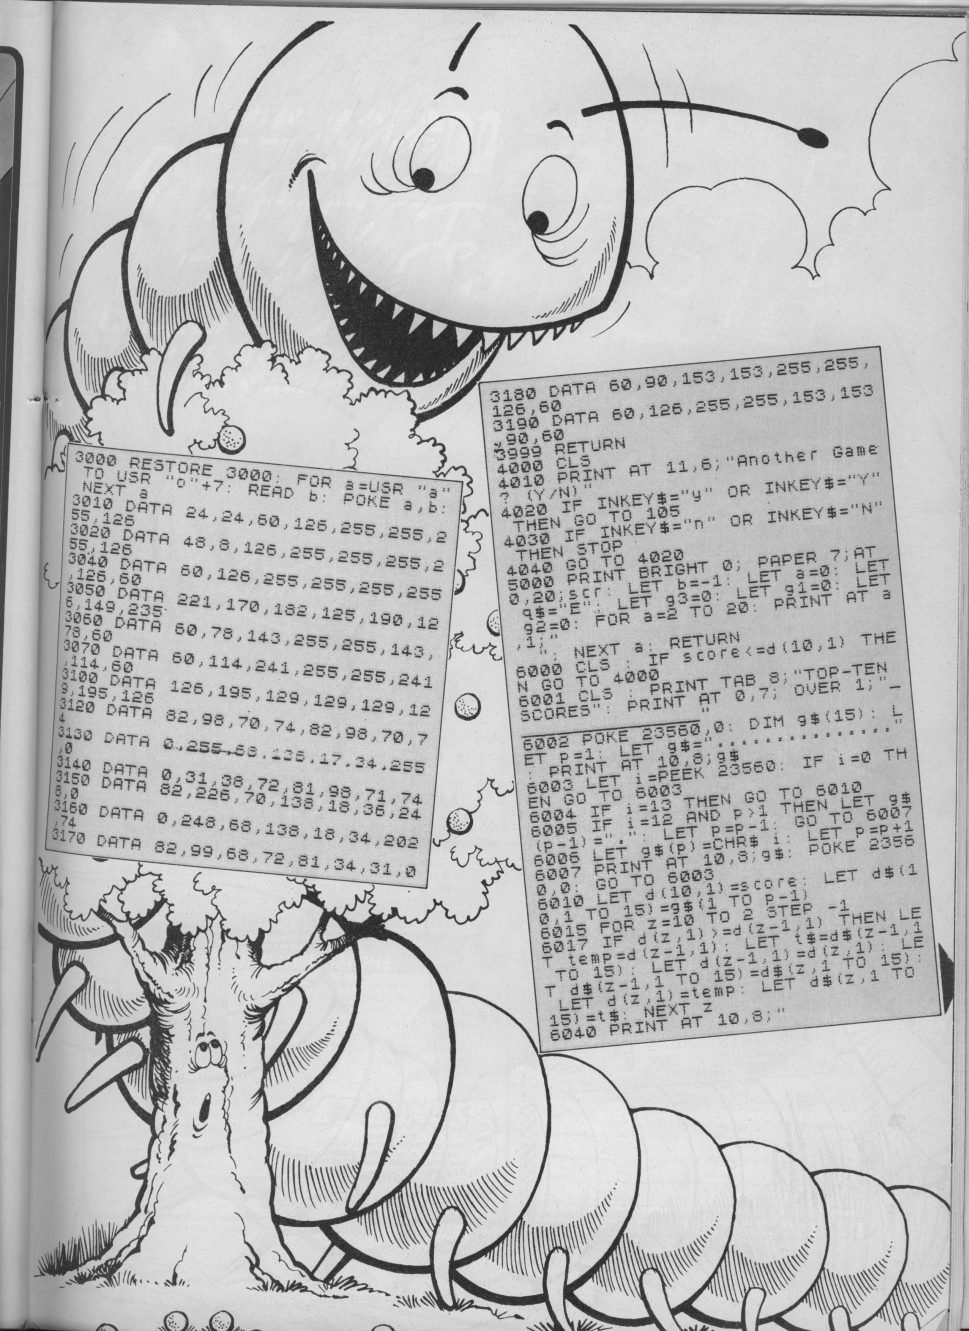 3000 RESTORE 3000: FOR a=USR "a"
TO USR "o"+7: READ b: POKE a,b:
NEXT a
3010 DATA 24,24,60,126,255,255,2
55,126
3020 DATA 48,8,126,255,255,255,2
55,126
3040 DATA 60,126,255,255,255,255
,126,60
3050 DATA 221,170,182,125,190,12
6,149,235
3060 DATA 60,78,143,255,255,143,
78,60
3070 DATA 60,114,241,255,255,241
,114,60
3100 DATA 126,195,129,129,129,12
9,195,126
3120 DATA 82,98,70,74,82,98,70,7
4
3130 DATA 0,255,68,136,17,34,255
,0
3140 DATA 0,31,38,72,81,98,71,74
3150 DATA 82,226,70,138,18,36,24
8,0
3160 DATA 0,248,68,138,18,34,202
,74
3170 DATA 82,99,68,72,81,34,31,0
3180 DATA 60,90,153,153,255,255,
126,60
3190 DATA 60,126,255,255,153,153
,90,60
3999 RETURN
4000 CLS
4010 PRINT AT 11,6;"Another Game
? (Y/N)"
4020 IF INKEY$="y" OR INKEY$="Y"
THEN GO TO 105
4030 IF INKEY$="n" OR INKEY$="N"
THEN STOP
4040 GO TO 4020
5000 PRINT BRIGHT 0; PAPER 7;AT
0,20;scr: LET b=-1: LET a=0: LET
q$="E": LET g3=0: LET g1=0: LET
g2=0: FOR a=2 TO 20: PRINT AT a
,1;"
": NEXT a: RETURN
6000 CLS : IF score<=d(10,1) THE
N GO TO 4000
6001 CLS : PRINT TAB 8;"TOP-TEN
SCORES": PRINT AT 0,7; OVER 1;"_
______________"
6002 POKE 23560,0: DIM g$(15): L
ET p=1: LET g$="..............."
: PRINT AT 10,8;g$
6003 LET i=PEEK 23560: IF i=0 TH
EN GO TO 6003
6004 IF i=13 THEN GO TO 6010
6005 IF i=12 AND p>1 THEN LET g$
(p-1)=".": LET p=p-1: GO TO 6007
6006 LET g$(p)=CHR$ i: LET p=p+1
6007 PRINT AT 10,8;g$: POKE 2356
0,0: GO TO 6003
6010 LET d(10,1)=score: LET d$(1
0,1 TO 15)=g$(1 TO p-1)
6015 FOR z=10 TO 2 STEP -1
6017 IF d(z,1)>=d(z-1,1) THEN LE
T temp=d(z-1,1): LET t$=d$(z-1,1
TO 15): LET d(z-1,1)=d(z,1): LE
T d$(z-1,1 TO 15)=d$(z,1 TO 15):
LET d(z,1)=temp: LET d$(z,1 TO
15)=t$: NEXT z
6040 PRINT AT 10,8;"